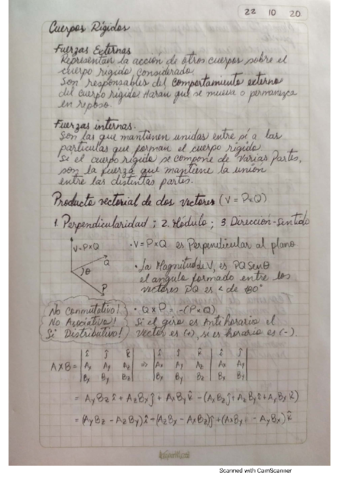 22 10 20
Cuerpos Rígidos
Fuerzas Externas
Representan la acción de otros cuerpos sobre el
cuerpo rígido considerado.
Son responsables del comportamiento externo
del cuerpo rígido Harán que se mueva o permanezca
en reposo.
Fuerzas internas.
Son las que mantienen unidas entre sí a las
partículas que forman el cuerpo rígido
Si el cuerpo rígido se compone de varias partes,
son la fuerza que mantiene la unión
entre las distintas partes.
Producto vectorial de dos vectores (V = PxQ)
1. Perpendicularidad ; 2. Módulo ; 3 Dirección-Sentido
V=PxQ
Q
θ
P
• V = PxQ es Perpendicular al plano
• La Magnitud de V, es PQ Senθ
el ángulo formado entre los
vectores PQ es < de
No Conmutativo!
No Asociativo!
Si Distributivo!
• Q x P = -(P x Q)
Si el giro es Antihorario el
Vector es (+), si es horario es (-)
AxB =
Scanned with CamScanner